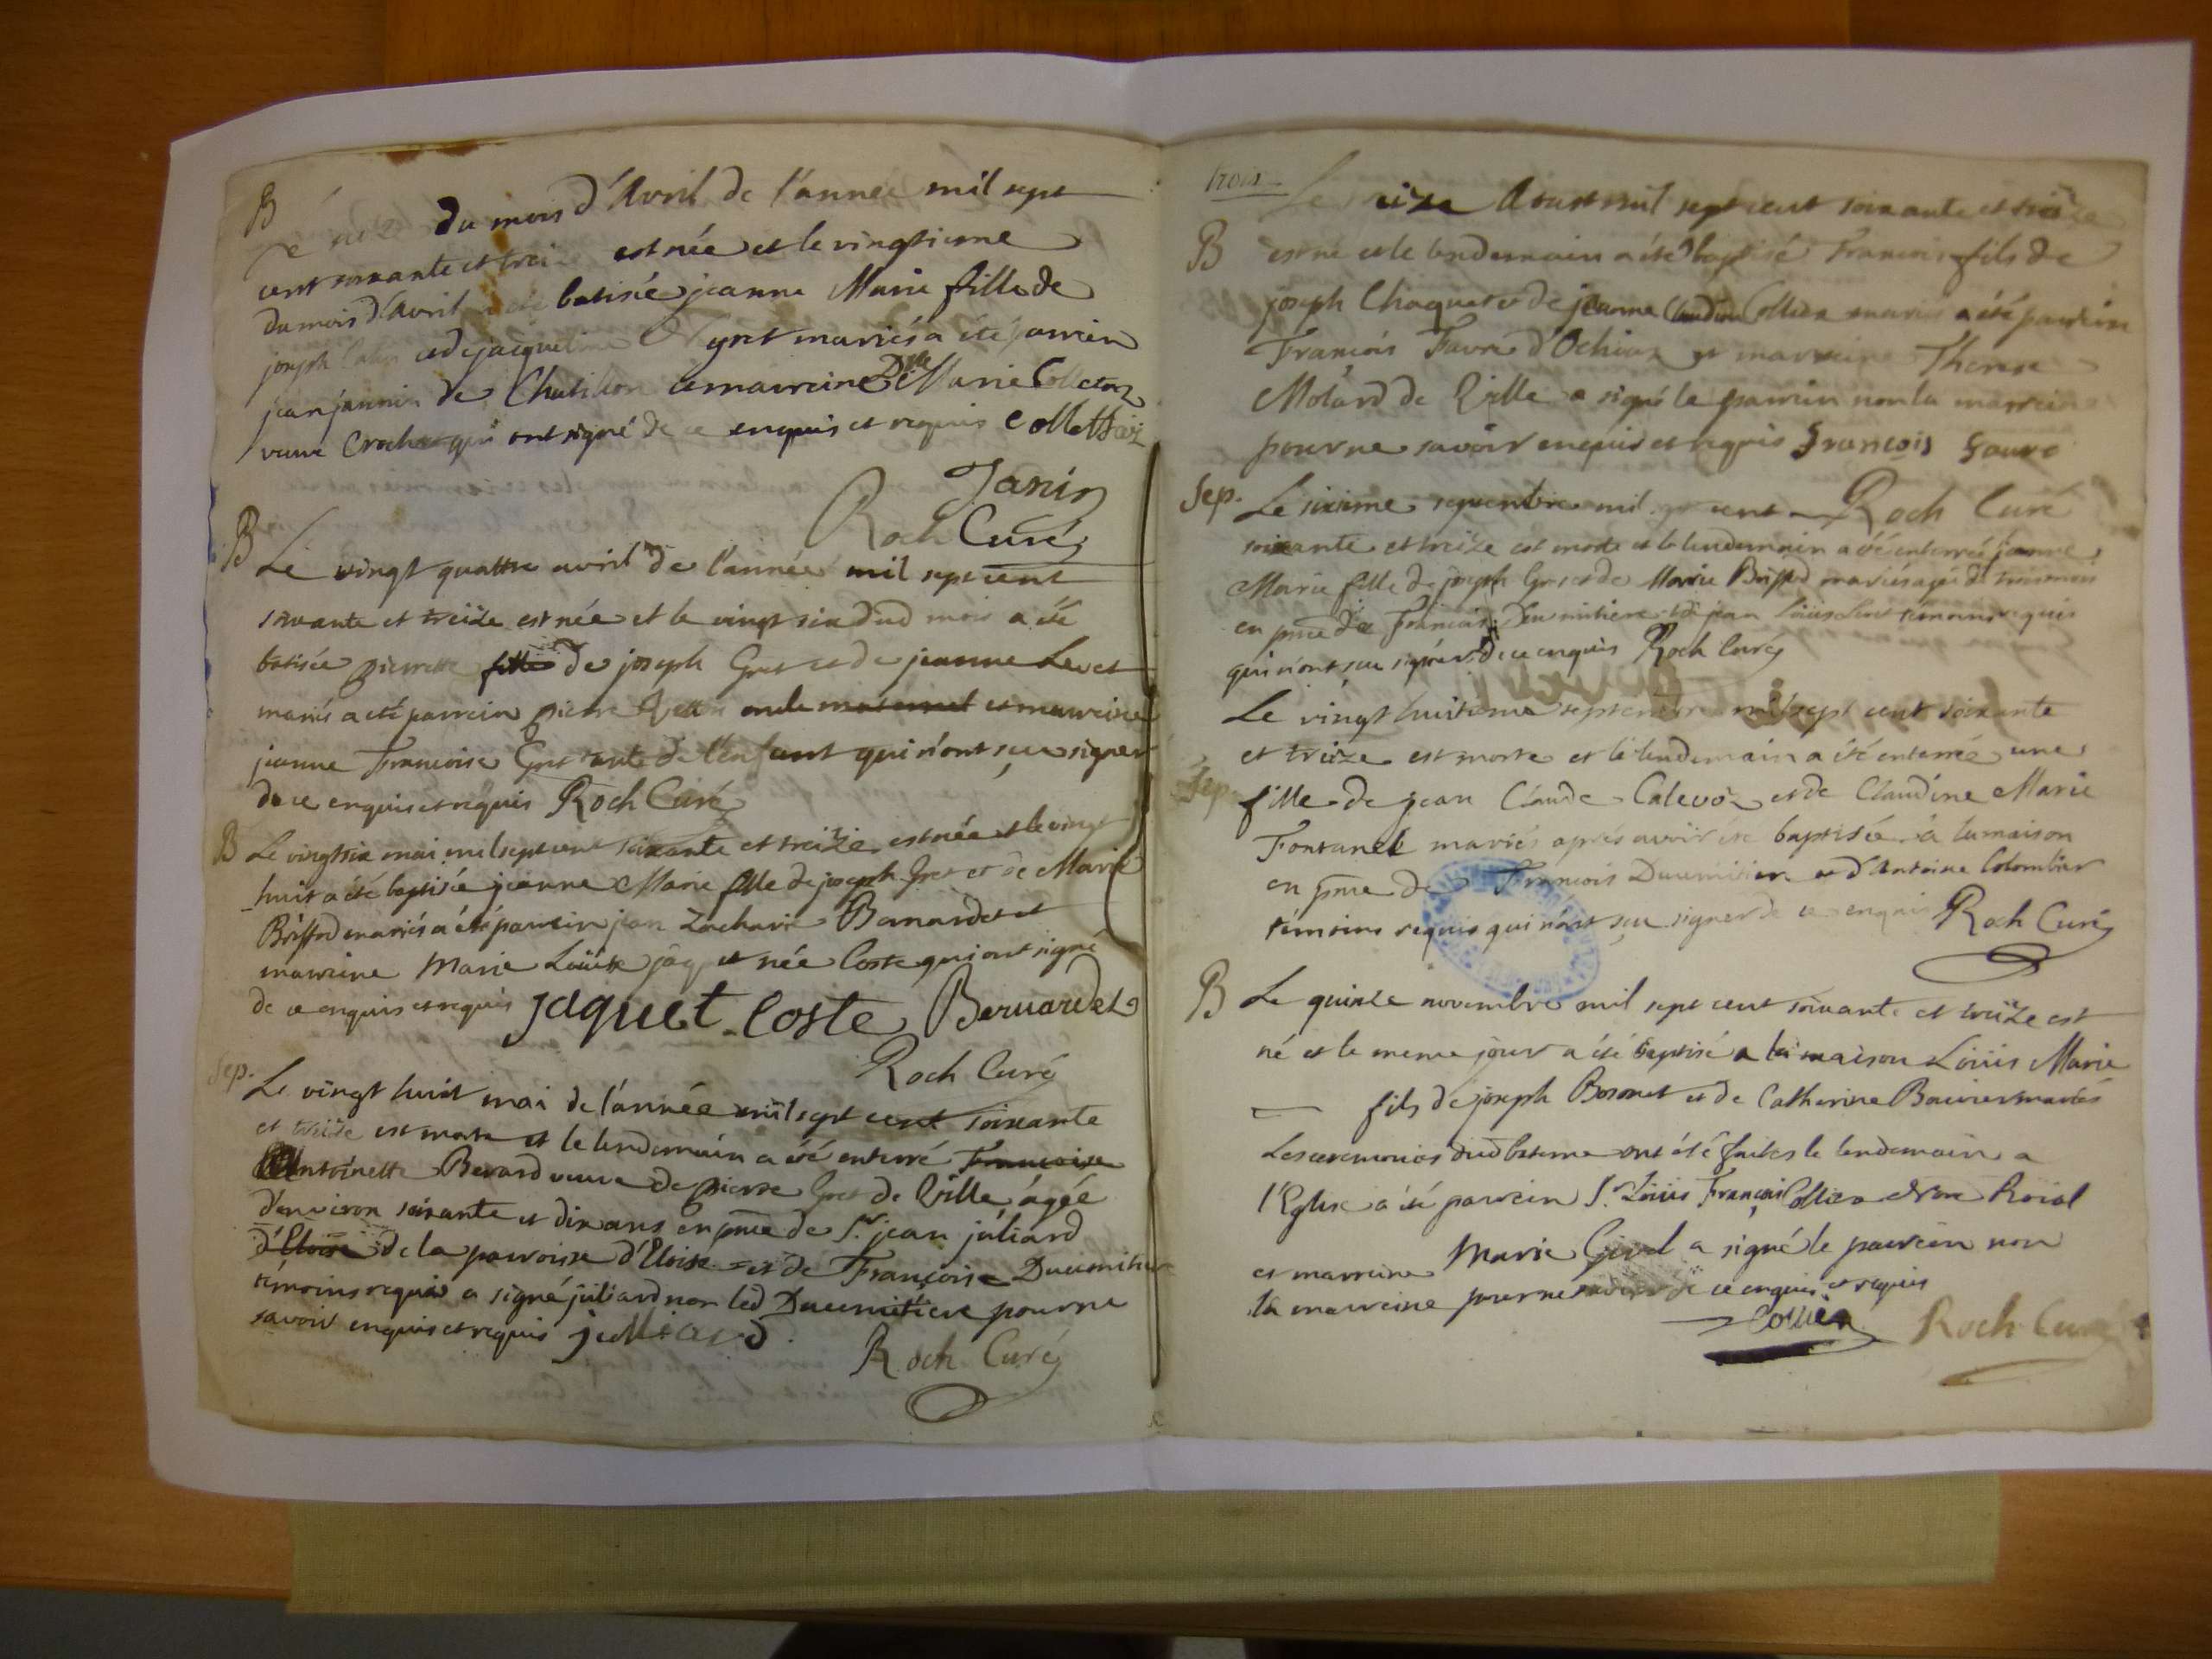 B
du mois d'Avril de l'année mil sept
cent soixante et treize est née et le vingtieme
du mois d'Avril a été batisée jeanne Marie fille de
joseph et de jacqueline Gret mariés a été parrein
jean jannin de Chatillon et marreine Dlle Marie Colletaz
veuve Crochet qui ont signé de ce enquis et requis Collettaz
Janin
Roch Curé
B Le vingt quattre avril de l'année mil sept cent
soixante et treize est née et le vingt six dud mois a été
batisée pierrette fille de joseph Gret et de jeanne Levet
mariés a été parrein pierre oncle maternel et marreine
jeanne Francoise Gret tante de l'enfant qui n'ont sçu signer
de ce enquis et requis Roch Curé
B Le vingt six mai mil sept cent soixante et treize est née et le vingt
huit a été baptisée jeanne Marie fille de joseph Gret et de Marie
Briffod mariés a été parrein jean Zacharie Bernardet et
marreine Marie Loüise jaq et née Coste qui ont signé
de ce enquis et requis jaquet Coste Bernardet
Roch Curé
Sep. Le vingt huit mai de l'année mil sept cent soixante
et treize est morte et le lendemain a été enterré Francoise
Antoinette Berard veuve de pierre Gret de Ville âgée
d'environ soixante et dix ans en pnce de Sr jean juliard
d'Eloise de la parroisse d'Eloise et de François Ducimitiere
témoins requis a signé juliard non led Ducimitiere pour ne
savoir enquis et requis julliard
Roch Curé
trois
Le treize Aoust mil sept cent soixante et treize
B est né et le lendemain a été baptisé Francois fils de
joseph Chaquet et de jeanne Claudine Colliex mariés a été parrein
François Favre d'Ochiaz et marreine Therese
Molard de Ville a signé le parrein non la marreine
pour ne savoir enquis et requis François Favre
Roch Curé
Sep. Le sixieme septembre mil sept cent
soixante et treize est morte et le lendemain a été enterrée jeanne
Marie fille de joseph Gret et de Marie Briffod mariés agée de trois mois
en pnce de Francois Ducimitiere et de jean Loüis témoins requis
qui n'ont sçu signer de ce enquis Roch Curé
Le vingt huitieme septembre mil sept cent soixante
et treize est morte et le lendemain a été enterrée une
Sep. fille de jean Claude Calevoz et de Claudine Marie
Fontanel mariés après avoir été baptisée à la maison
en pnce de François Ducimitiere et d'Antoine Colombier
témoins requis qui n'ont sçu signer de ce enquis Roch Curé
B Le quinze novembre mil sept cent soixante et treize est
né et le meme jour a été baptisé a la maison Loüis Marie
fils de joseph Bosonet et de Catherine mariés
Les ceremonies dud bateme ont été faites le lendemain a
l'Eglise a été parrein Sr Loüis François Colliex Roial
et marreine Marie Girel a signé le parrein non
la marreine pour ne savoir de ce enquis et requis
Colliex Roch Curé